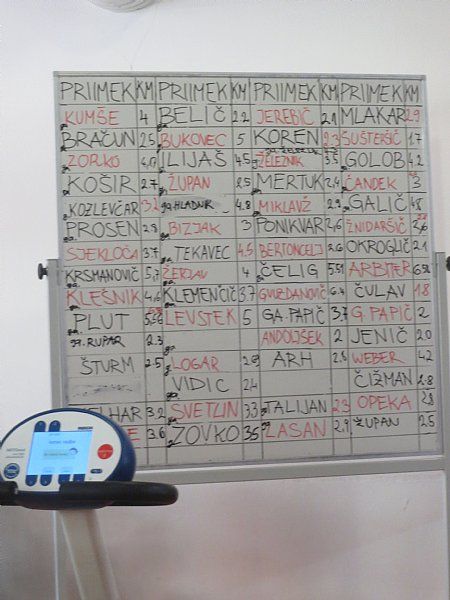 PRIIMEK KM PRIIMEK KM PRIIMEK KM PRIIMEK KM
KUMŠE 4 BELIČ 2.2 JEREBIČ MLAKAR 2.9
BRAČUN 2.5 BUKOVEC 5 KOREN 2.3 ŠUŠTERŠIČ 1.7
ZORKO ILIJAŠ 4.5 ŽELEZNIK 3.5 GOLOB 4.2
KOŠIR 2.7 ŽUPAN 2.5 MERTUK 2.4 ČANDEK 3
KOZLEVČAR 3.2 HLADNIK 4.8 MIKLAVŽ 2.9 GALIČ 4.8
PROSEN 2.9 BIZJAK 3 PONIKVAR ŽNIDARŠIČ
SJEKLOČA 3.7 TEKAVEC 4.5 BERTONCELJ 2.6 OKROGLIČ 2.1
KRSMANOVIČ ŽERJAV 4 ČELIG ARBITER
KLEŠNIK 4.6 KLEMENČIČ 3.7 GVOZDANOVIČ 6.4 ČULAV 1.8
PLUT LEVSTEK 5 GA.PAPIČ 3.7 G.PAPIČ 2
RUPAR 2.3 ANDOLJŠEK 2 JENIČ 2.0
ŠTURM 2.5 LOGAR ARH 2.8 WEBER 4.2
VIDIC 2.4 ČIŽMAN 2.8
3.2 SVETLIN 3.3 TALIJAN 2.3 OPEKA 2.8
3.6 ZOVKO 3.5 LASAN 2.9 ŽUPAN 2.5